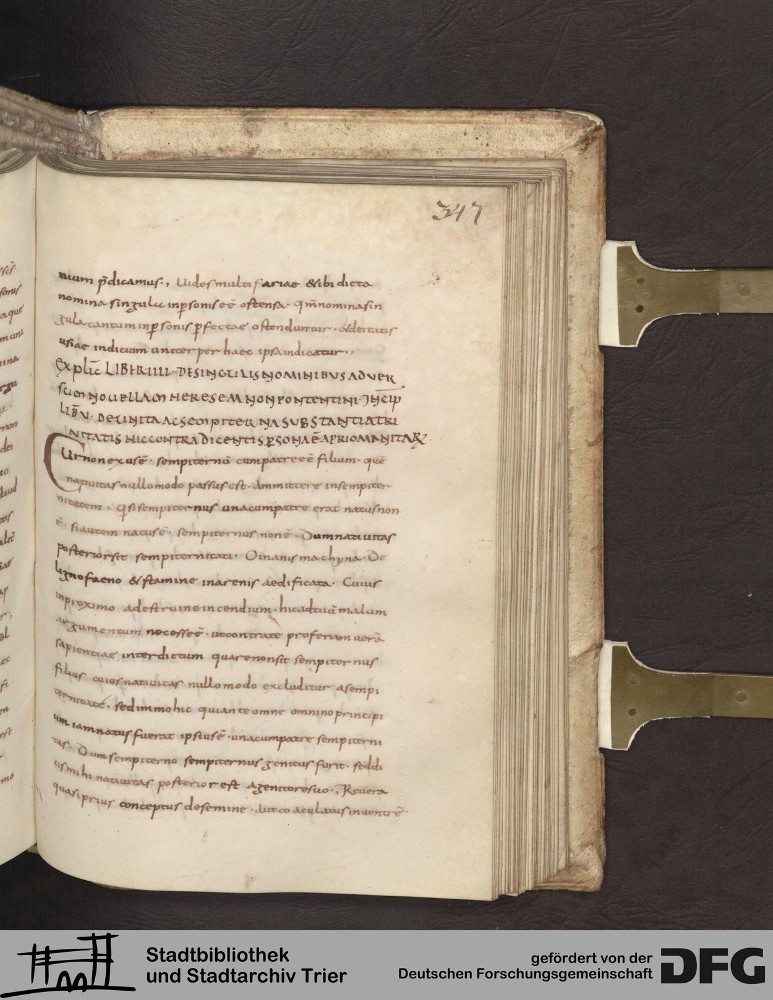 347
nium p̄dicamus., Uides multifariae &sibi dicta
nomina singula inp̱sonis eē ostensa. qm̄ nomina sin
gula tantum inp̱sonis p̱fectae ostenduntur. & deitatis
usiae indicium uniter per haec ipsa indicatur.,
Explic̄ LIBER IIII. DE SINGULIS NOMINIBUS ADUER
SUM NOUELLAM HERESEM NON PONTENTINI. INCIP̄
LIB̄ V. DE UNITA AC SEMPITERNA SUBSTANTIA TRI
NITATIS HIC CONTRADICENTIS P̱SONA Ē APRIOMANITARŪ.
Cur non excusē. sempiternū cum patre eē filium. quē
natiuitas nullomodo passus est. ammittere insempiter
nitatem. Qsi sempiternus una cum patre erat natus non
ē. si autem natus ē. sempiternus non ē. Dum natiuitas
posterior sit sempiternitati. O inanis machyna. De
ligno faeno & stamine in arenis aedificata. Cuius
inproximo adest ruine incendium. hic ad tuū malum
argumentum necesse ē. ut contra te proferam uerā
sapientiae interdictum quare non sit sempiternus
filius cuios natiuitas nullomodo excluditur a sempi
ternitate. sed immo hic qui ante omne omnino principi
um iam natus fuerat ipsius ē. una cum patre sempiterni
tas. Dum sempiterno sempiternus genitus fuit. sed di
cis mihi natiuitas posterior est a genitore suo. Reuera
quasi prius conceptus de semine. aut coaculatus inuentre ē.
Stadtbibliothek
und Stadtarchiv Trier
gefördert von der
Deutschen Forschungsgemeinschaft
DFG